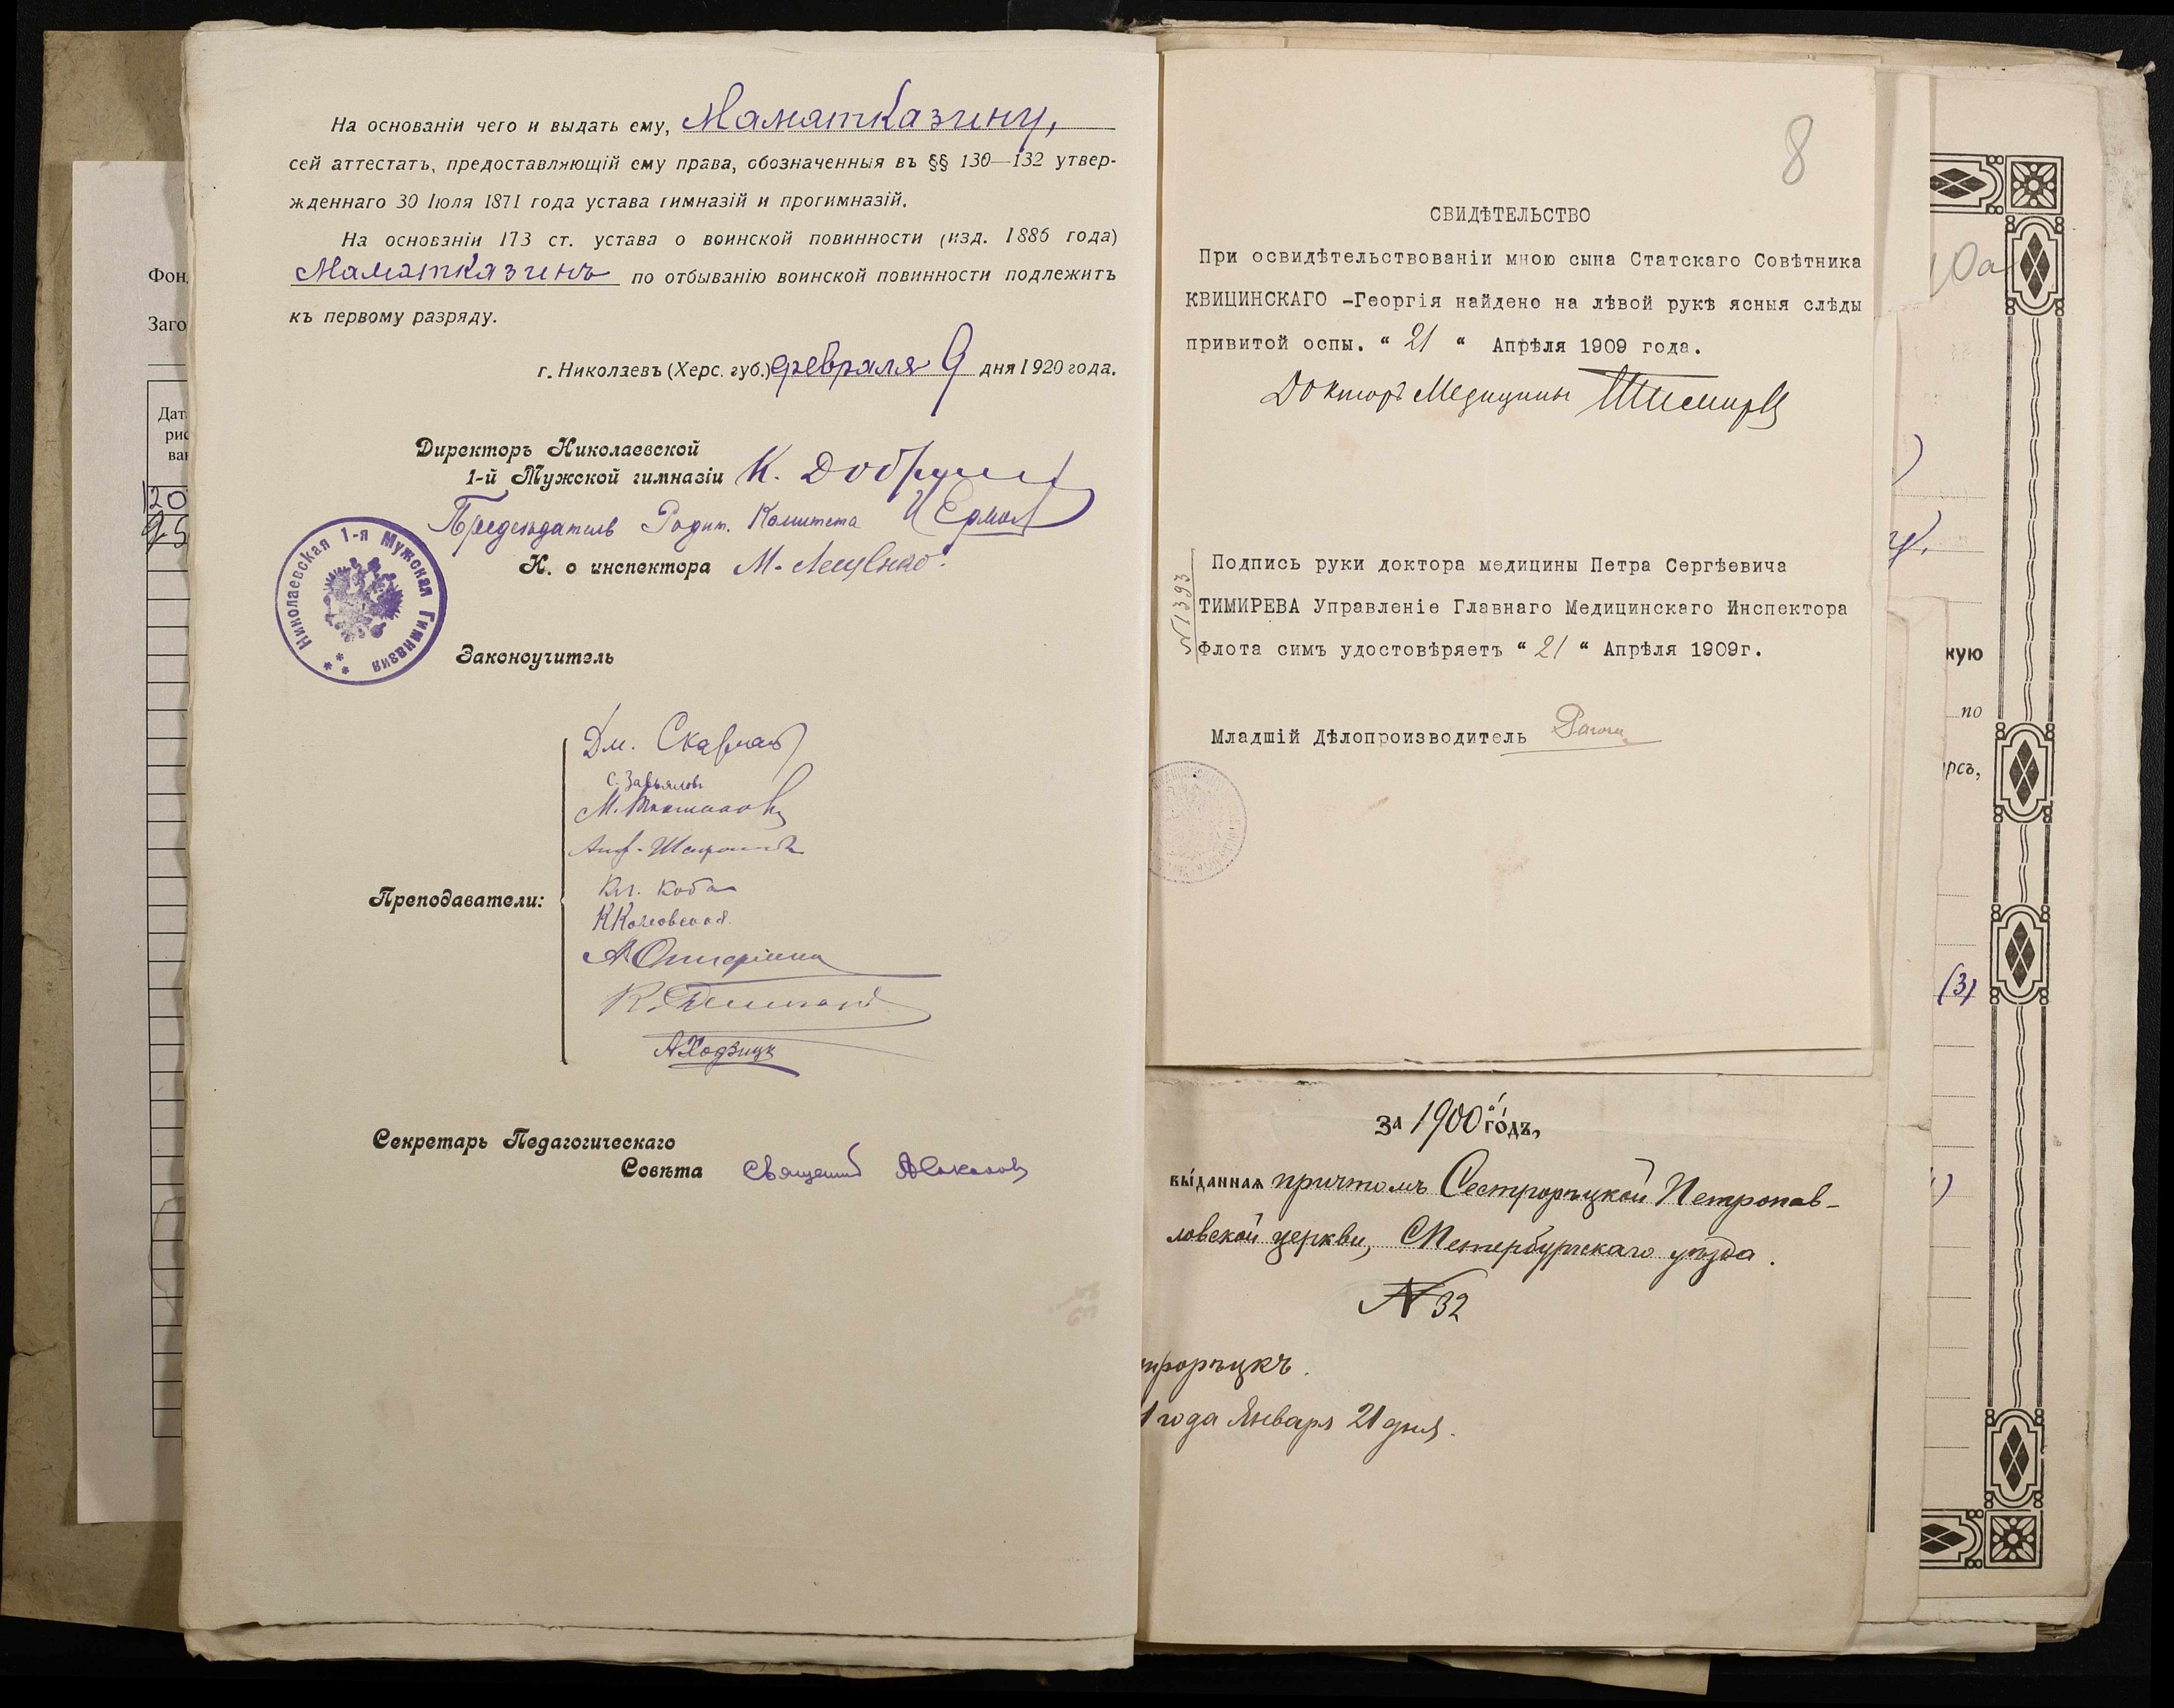 На основаніи чего и выдать ему, Маматказину,
сей аттестатъ, предоставляющій ему права, обозначенныя въ §§ 130—132 утвер-
жденнаго 30 Іюля 1871 года устава гимназій и прогимназій.
На основаніи 173 ст. устава о воинской повинности (изд. 1886 года)
Маматказинъ по отбыванію воинской повинности подлежитъ
къ первому разряду.
г. Николаевъ (Херс. губ.) февраля 9 дня 1920 года.
Директоръ Николаевской
1-й Мужской гимназіи К.
Предсѣдатель Родит. Комитета
И. о инспектора М.
Николаевская 1-я Мужская Гимназия
Законоучитель
Дм.
С. Завьялов
М.
Преподаватели:
Кл. Коба
К
А
К.
А Ходзицк
Секретарь Педагогическаго
Совѣта Священник
8
СВИДѢТЕЛЬСТВО
При освидѣтельствованіи мною сына Статскаго Совѣтника
КВИЦИНСКАГО -Георгія найдено на лѣвой рукѣ ясныя слѣды
привитой оспы. “ 21 “ Апрѣля 1909 года.
Докторъ Медицины
№1393
Подпись руки доктора медицины Петра Сергѣевича
ТИМИРЕВА Управленіе Главнаго Медицинскаго Инспектора
Флота симъ удостовѣряетъ “ 21 “ Апрѣля 1909г.
Младшій Дѣлопроизводитель
за 1900 й годъ,
выданная причтомъ Сестрорѣцкой Петропав-
ловской церкви, СПетербургскаго уѣзда.
№ 32
трорѣцкъ.
1 года Января 21 дня.
Фон
Заго
Дат
рис
ван
20
10а
кую
по
рсъ,
(3)